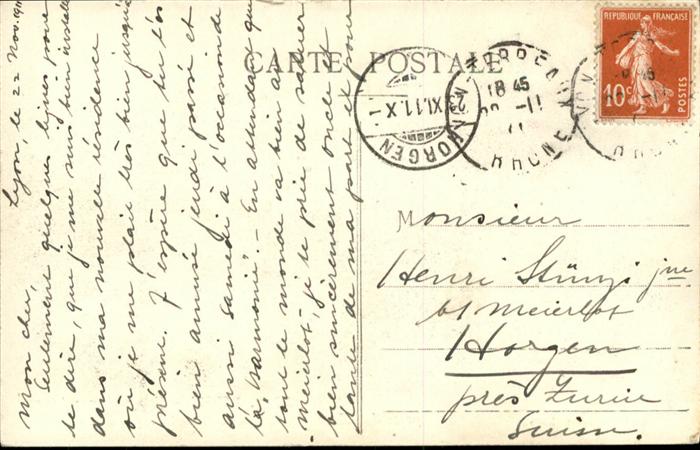 CARTE POSTALE
Lyon, le 22 Nov. 1911
Mon cher,
Seulement quelques lignes pour
te dire, que je me suis bien installé
dans ma nouvelle résidence
où je me plait très bien jusqu'à
présent. J'espère que tu t'es
bien amusé jeudi passé et
aussi samedi à l'occasion de
la "Harmonie". - En attendant que
tout le monde va bien au
"Meierhof", je te prie de saluer
bien sincèrement oncle et
tante de ma part et
REPUBLIQUE FRANÇAISE
10c
POSTES
HORGEN
23.XI.11.X-
LYON-TERREAUX
18 45
22 -11
11
RHONE
Monsieur
Henri Stünzi jne
Meierhof
Horgen
près Zurich
Suisse.